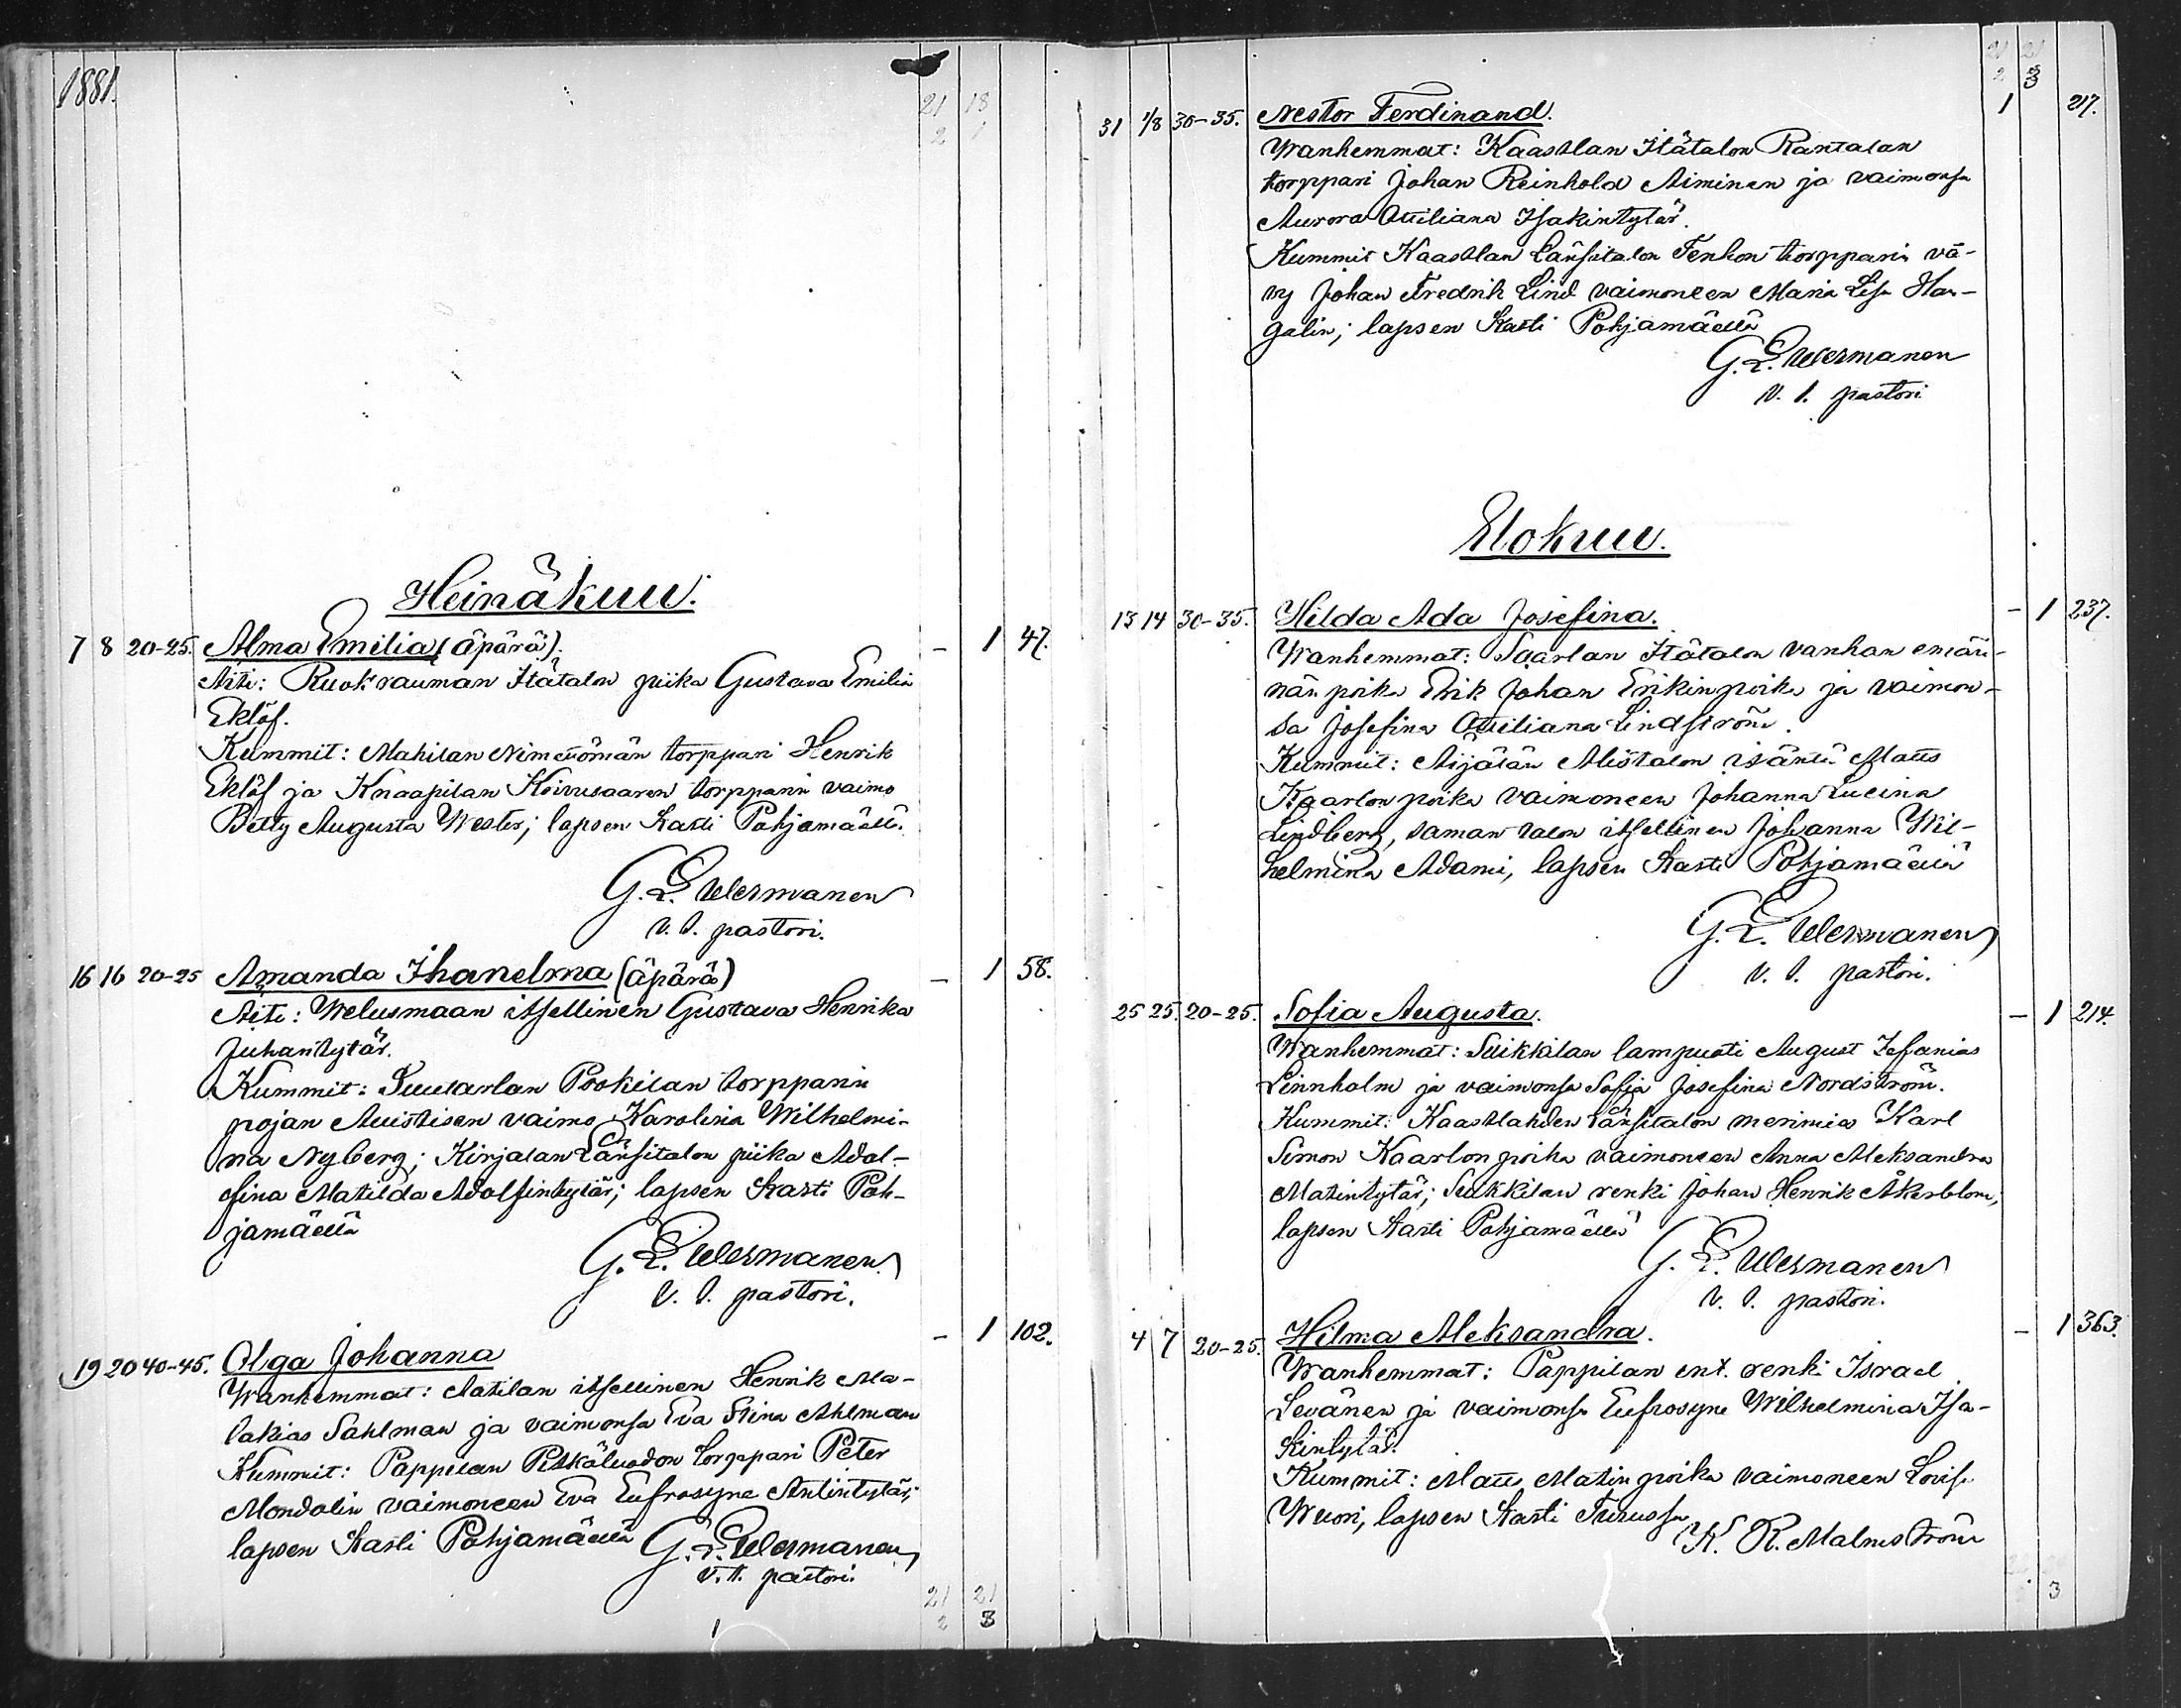 1881.
21 18
2 1
Heinäkuu.
7 8 20-25. Alma Emilia (äpärä). - 1 47.
Äiti: Ruokrauman Itätalon piika Gustava Emilia
Eklöf.
Kummit: Mahilan Nimettömän torppari Henrik
Eklöf ja Knaapilan Koivusaaren torpparin vaimo
Betty Augusta Wester; lapsen kasti Pohjamäellä.
G. L. Wermanen
v. t. pastori.
16 16 20-25 Amanda Ihanelma (äpärä) - 1 58.
Äiti: Welusmaan itsellinen Gustava Henrika
Juhantytär.
Kummit: Pookilan torpparin
pojan vaimo Karolina Wilhelmi-
na Nyberg; Kirjalan Länsitalon piika Adol-
fina Matilda Adolfintytär; lapsen kasti Poh-
jamäellä
G. L. Wermanen
v. t. pastori.
19 20 40-45. Olga Johanna - 1 102.
Wanhemmat: Aatilan itsellinen Henrik Ma-
lakias Sahlman ja vaimonsa Eva Stina Ahlman
Kummit: Pappilan Pitkäluodon torppari Peter
Mondolin vaimoneen Eva Eufrosyne Antintytär;
lapsen kasti Pohjamäellä G. L. Wermanen
v. t. pastori.
21 21
2 3
21 21
2 3
31 1/8 30-35. Nestor Ferdinand. 1 217.
Wanhemmat: Kaastlan Itätalon Rantalan
torppari Johan Reinhold Aiminen ja vaimonsa
Aurora Ottiliana Isakintytär.
Kummit Kaastlan Länsitalon torpparin vä-
vy Johan Fredrik Lind vaimoneen Maria Lisa Han-
galin; lapsen kasti Pohjamäellä
G. L. Wermanen
v. t. pastori
Elokuu.
13 14 30-35. Hilda Ada Josefina. - 1 237.
Wanhemmat: Saarlan Itätalon vanhan emän-
nän poika Erik Johan Erikinpoika ja vaimon-
sa Josefina Ottiliana Lindström.
Kummit: Äijälän Alistalon isäntä Matts
Kaarlonpoika vaimoneen Johanna Lucina
Lindberg, saman talon itsellinen Johanna Wil-
helmina Adami, lapsen kasti Pohjamäellä
G. L. Wermanen
v. t. pastori.
25 25. 20-25. Sofia Augusta. - 1 214.
Wanhemmat: Suikkilan lampuoti August Zefanias
Linnholm ja vaimonsa Sofia Josefina Nordström.
Kummit: Kaastlahden Länsitalon merimies Karl
Simon Kaarlonpoika vaimoneen Anna Aleksandra
Matintytär; Suikkilan renki Johan Henrik Åkerblom;
lapsen kasti Pohjamäellä
G. L. Wermanen
v. t. pastori.
4 7 20-25. Hilma Aleksandra. - 1 363.
Wanhemmat: Pappilan ent. renki Israel
Levänen ja vaimonsa Eufrosyne Wilhelmina Isa-
kintytär.
Kummit: Matts Matinpoika vaimoneen Lovisa
Wuori, lapsen kasti Turussa
K. R. Malmström
3